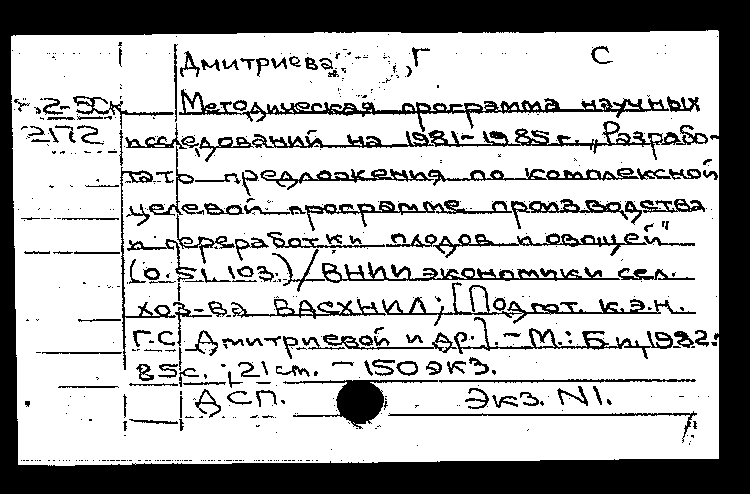 Дмитриева, Г С
2-50к Методическая программа научных
2172 исследований на 1981-1985 г. „Разрабо-
тать предложения по комплексной
целевой программе производства
и переработки плодов и овощей"
(0.51.103.) / ВНИИ экономики сел.
хоз-ва ВАСХНИЛ; [Подгот. к.э.н.
Г.С. Дмитриевой и др.]. - М.: Б и, 1982.
85 с.; 21 cm. - 150 экз.
ДСП. Экз. N1.